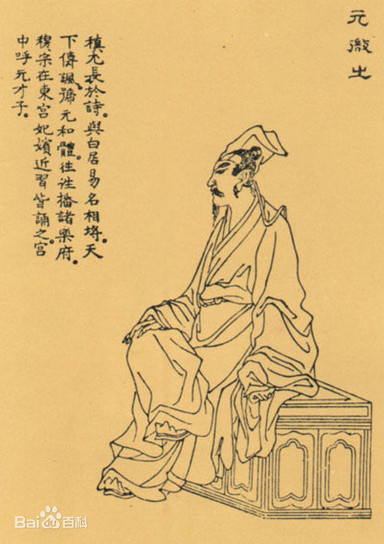 元微之
稹尤長於詩。與白居易名相埒。天
下傳諷。號元和體。往往播諸樂府。
穆宗在東宮妃嬪近習皆誦之。宮
中呼元才子。
Baidu百科